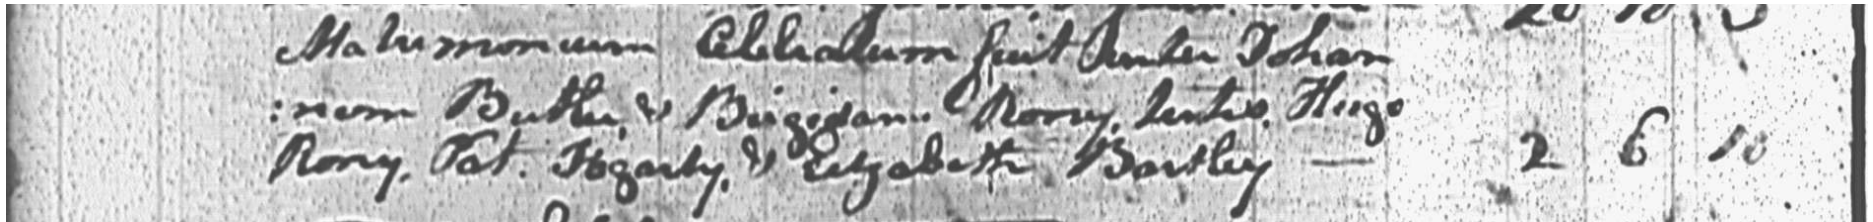 Matrimonium Celebratum fuit Inter Johan
:nem Butler, & Birgidam Rony, testes. Hugo
Rony, Pat. Hogarty, & Elizabeth Bartley — 2 6 10